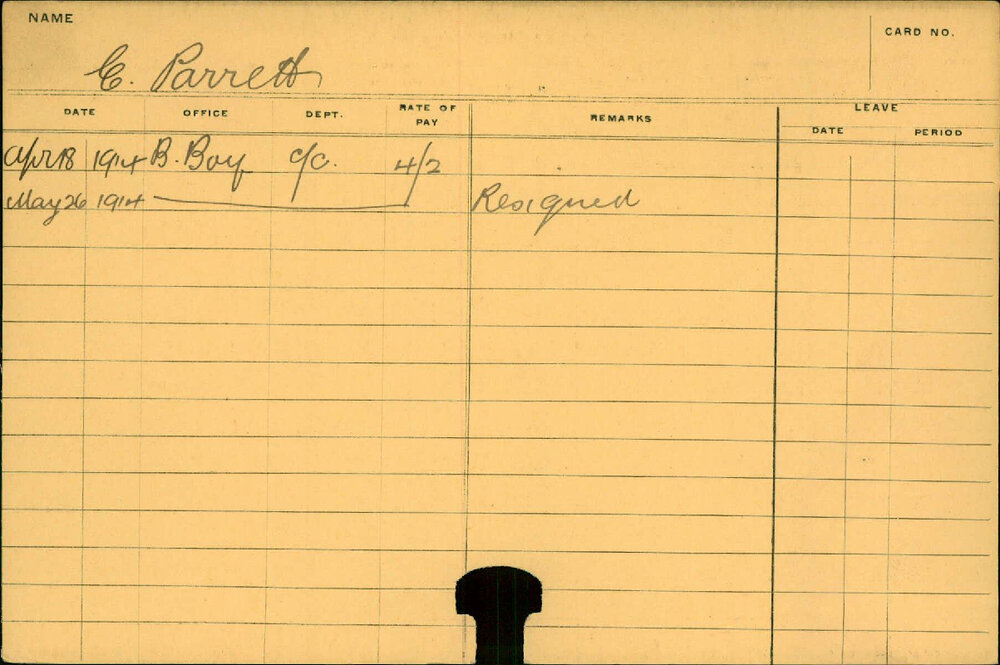 NAME
CARD NO.
E. Parrett
DATE OFFICE DEPT. RATE OF PAY REMARKS LEAVE
DATE PERIOD
Apr 18 1914 B. Boy C/C. 4/2
May 26 1914 Resigned